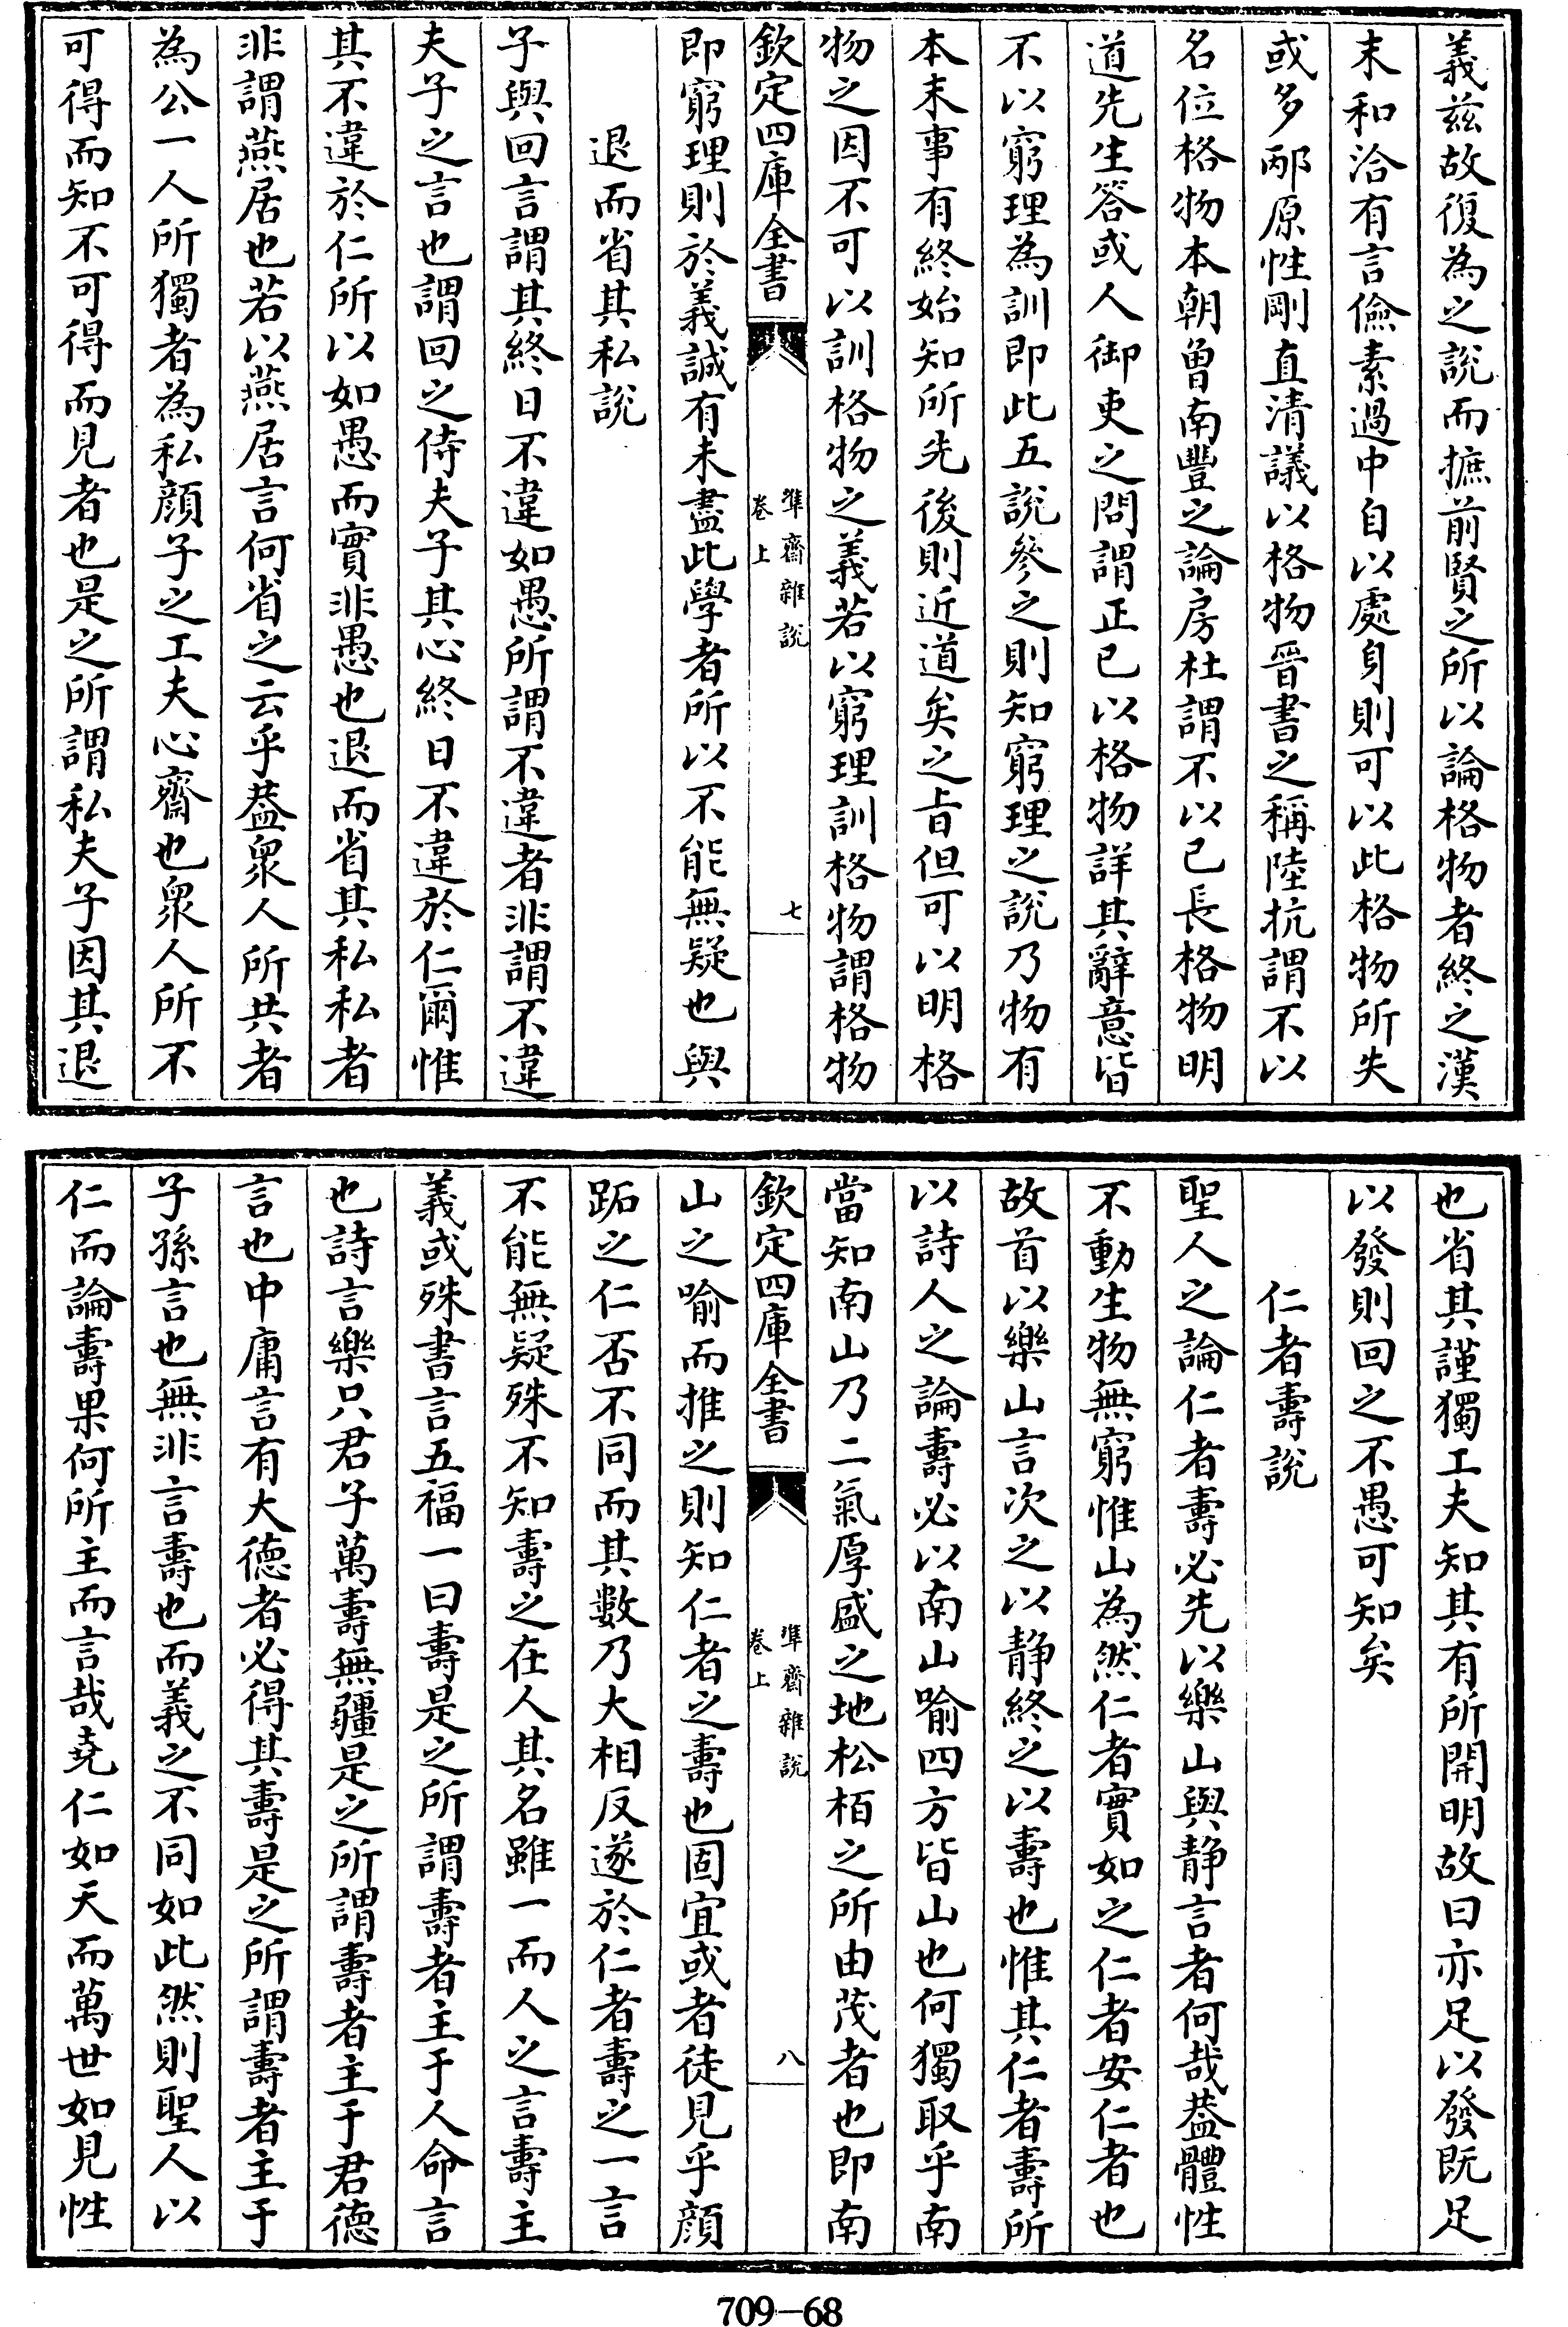 義兹故復為之說而摭前賢之所以論格物者終之漢
末和洽有言儉素過中自以處身則可以此格物所失
或多邴原性剛直清議以格物晉書之稱陸抗謂不以
名位格物本朝曾南豐之論房杜謂不以已長格物明
道先生答或人御吏之問謂正已以格物詳其辭意皆
不以窮理為訓即此五說參之則知窮理之說乃物有
本末事有終始知所先後則近道矣之㫖但可以明格
物之因不可以訓格物之義若以窮理訓格物謂格物
欽定四庫全書
凖齋雜說
卷上
七
即窮理則於義誠有未盡此學者所以不能無疑也與
退而省其私說
子與回言謂其終日不違如愚所謂不違者非謂不違
夫子之言也謂回之侍夫子其心終日不違於仁爾惟
其不違於仁所以如愚而實非愚也退而省其私私者
非謂燕居也若以燕居言何省之云乎葢衆人所共者
為公一人所獨者為私顔子之工夫心齋也衆人所不
可得而知不可得而見者也是之所謂私夫子因其退
也省其謹獨工夫知其有所開明故曰亦足以發既足
以發則回之不愚可知矣
仁者壽說
聖人之論仁者壽必先以樂山與静言者何哉葢體性
不動生物無窮惟山為然仁者實如之仁者安仁者也
故首以樂山言次之以静終之以壽也惟其仁者壽所
以詩人之論壽必以南山喻四方皆山也何獨取乎南
當知南山乃二氣厚盛之地松栢之所由茂者也即南
欽定四庫全書
凖齋雜說
卷上
八
山之喻而推之則知仁者之壽也固宜或者徒見乎顔
跖之仁否不同而其數乃大相反遂於仁者壽之一言
不能無疑殊不知壽之在人其名雖一而人之言壽主
義或殊書言五福一曰壽是之所謂壽者主于人命言
也詩言樂只君子萬壽無疆是之所謂壽者主于君德
言也中庸言有大德者必得其壽是之所謂壽者主于
子孫言也無非言壽也而義之不同如此然則聖人以
仁而論壽果何所主而言哉堯仁如天而萬世如見性
709-68